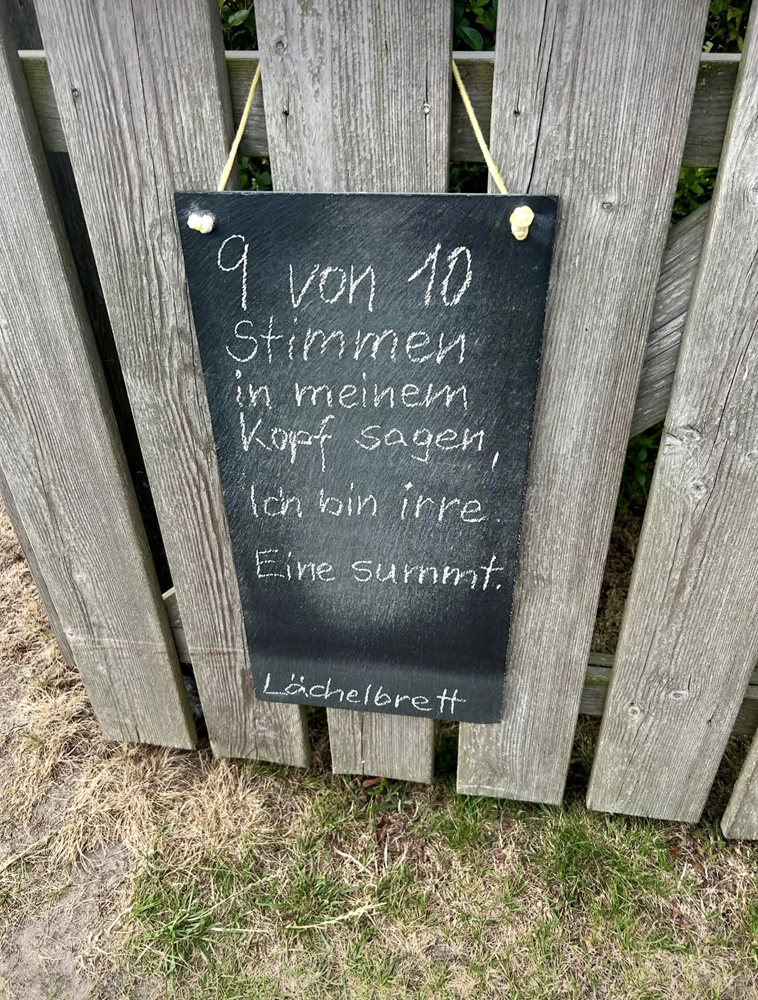 9 von 10
Stimmen
in meinem
Kopf sagen,
Ich bin irre.
Eine summt.
Lächelbrett